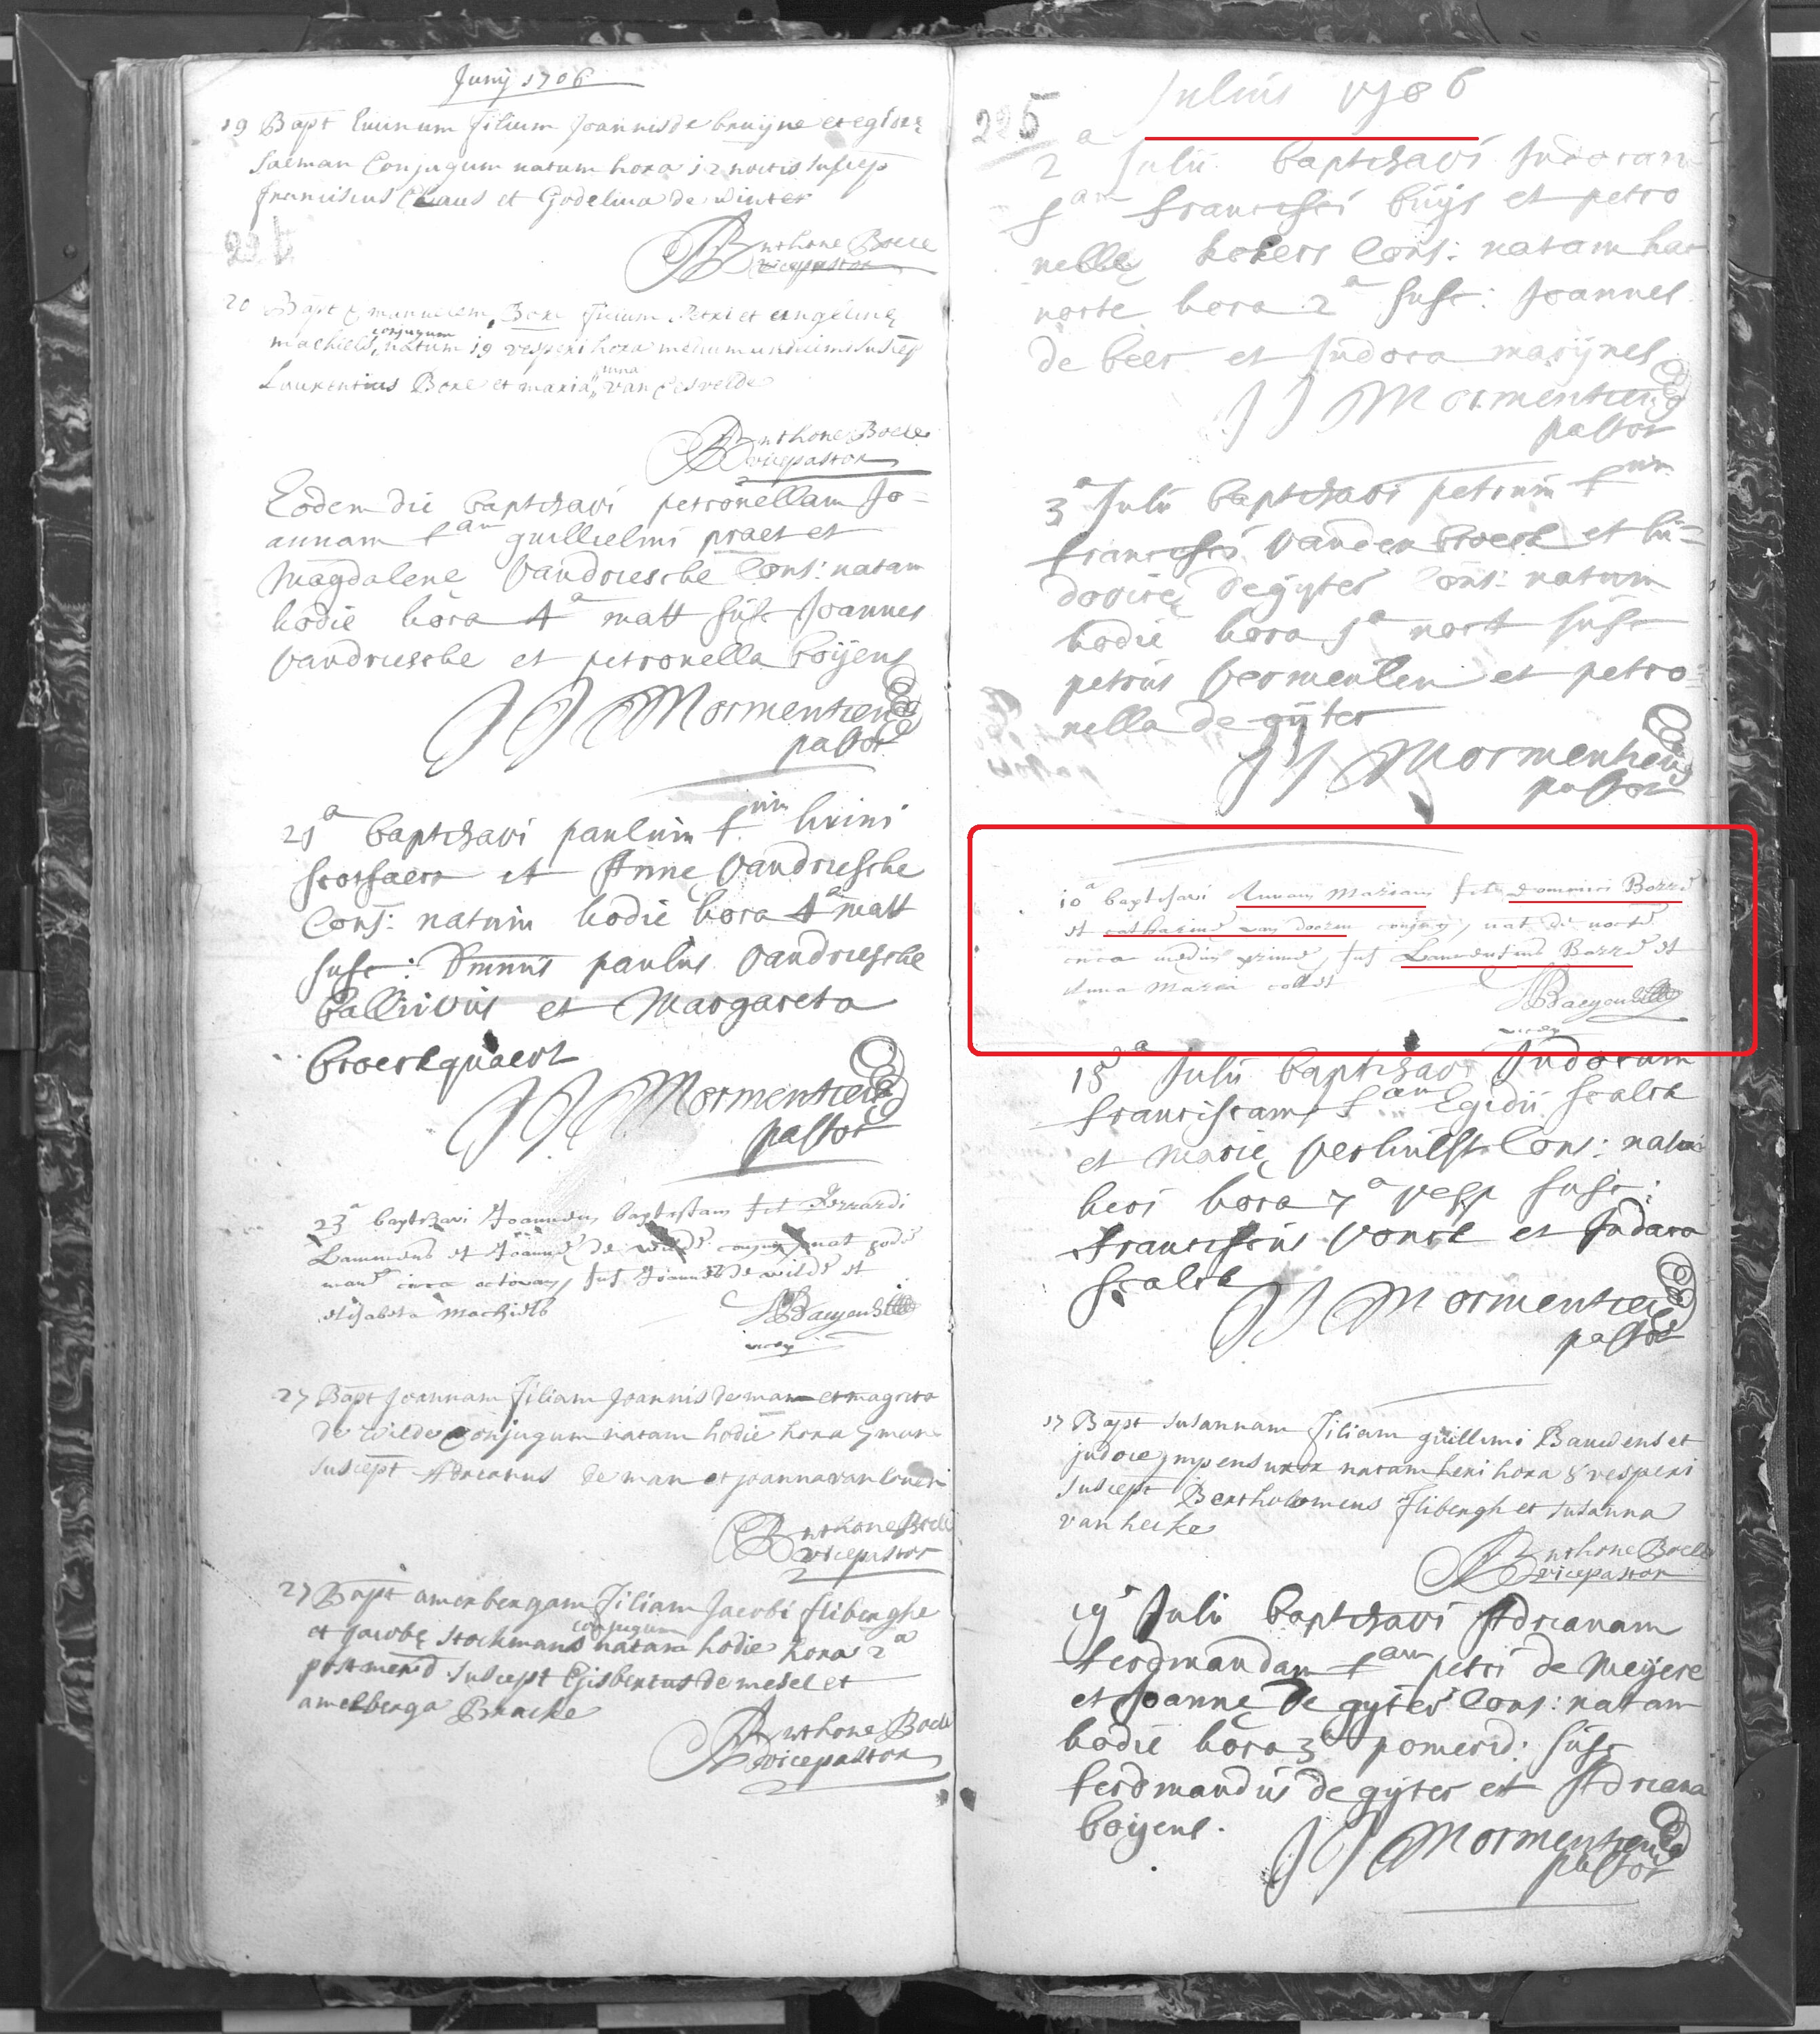 Junij 1706
19 Bapt livinum filium Joannis de bruijne et egidię
saeman Conjugum natum hora 12 noctis suscep
franciscus Claus et Godelina de winter
Anthone Boele
vicepastor
224
20 Bapt Emanuelem Boxe filium Petri et angelinę
conjugum
machiels, natum 19 vesperi hora undecima suscep
anna
Laurentius Boxe et maria van
Anthone Boele
vicepastor
Eodem die baptisavi petronellam Jo=
annam f am guillielmi praet et
Magdalene Vandriesche Cons: natam
hodie hora 4 a matt susc Joannes
Vandriesche et petronella boijens
J J Mormentien
pastor
21 a baptisavi paulum f. um livini
scotsaert et Anne Vandriesche
Cons: natum hodie hora 4 a matt
susc: Dmnus paulus Vandriesche
Ballivius et Margareta
broerkquaert
J J Mormentien
pastor
23 a baptisavi Joannem baptistam fil Gerrardi
Lammens et Joannę de wilde conjug, nat hodie
mane circa octavam, sus Joannes de wilde et
elisabeta Machiels
27 Bapt Joannam filiam Joannis de man et magreta
de wilde Conjugum natam hodie hora 5 mane
suscept Adrianus de man et joanna van
Anthone Boele
vicepastor
27 Bapt amerbergam filiam Jacobi fliberghe
conjugum
et jacobę stockmans natam hodie hora 2 a
postmerid suscept Gisbertus de mesel et
amelberga Bracke
Anthone Boele
vicepastor
225
Julius 1706
2 a Julii baptisavi Judocam
f am francisci buijs et petro
nellę kokers Cons: natam hac
nocte hora 2 a susc: Joannes
de beer et Judoca marijnes
J J Mormentien
pastor
3 a Julii baptisavi petrum f um
francisci vanden broeck et lu=
dovicę degijter Cons: natum
hodie hora 1 a noct susc
petrus vermeulen et petro=
nella de gijter
J J Mormentien
pastor
10 a baptisavi Annam Mariam fil dominici Borre
et catharinę van doorn conjug, nat de nocte
circa mediam primę, sus Laurentius Borre et
Anna Maria
15 a Julii baptisavi Judocam
franciscam f am Egidii scalck
et Marię verhulst Cons: natam
heri hora 7 a vesp susc:
franciscus vonck et Judoca
scalck
J J Mormentien
pastor
17 Bapt susannam filiam guillemi Bauwens et
judocę impens uxor natam heri hora 8 vesperi
suscept Bertholomeus flibergh et susanna
van hecke
Anthone Boele
vicepastor
19 a Julii baptisavi Adrianam
ferdinandam f am petri de Meijere
et Joannę de gijter Cons: natam
hodie hora 3 a pomerid: susc
ferdinandus de gijter et Adriana
boijens.
J J Mormentien
pastor